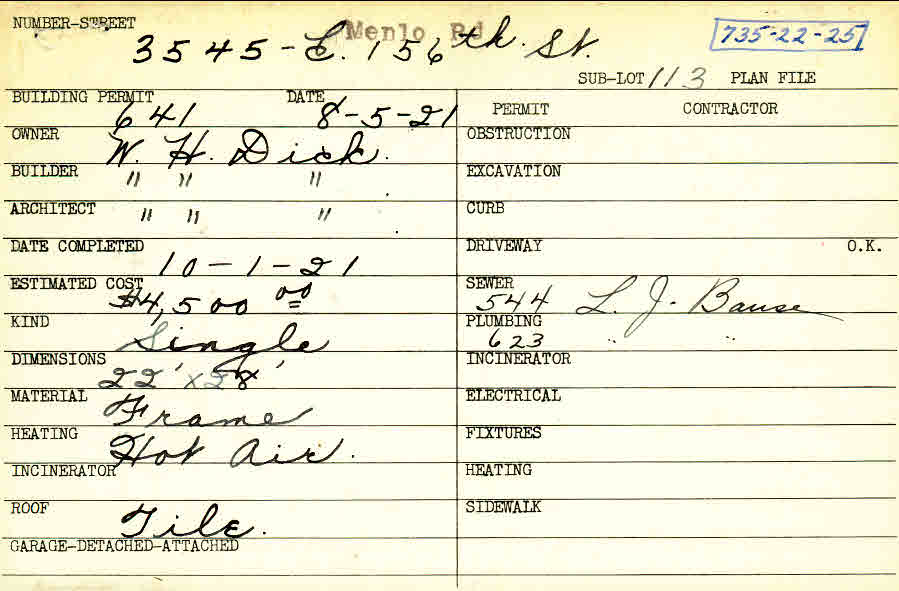 NUMBER-STREET
Menlo Rd
3545-E. 156th. St.
735-22-25
SUB-LOT 113 PLAN FILE
BUILDING PERMIT DATE
641 8-5-21
PERMIT CONTRACTOR
OWNER W. H. Dick.
OBSTRUCTION
BUILDER " " "
EXCAVATION
ARCHITECT " " "
CURB
DATE COMPLETED
10-1-21
DRIVEWAY O.K.
ESTIMATED COST
$4,500 00
SEWER
544 L. J. Bause
KIND
Single
PLUMBING
623 " "
DIMENSIONS
22' x 28'
INCINERATOR
MATERIAL
Frame
ELECTRICAL
HEATING
Hot Air.
FIXTURES
INCINERATOR
HEATING
ROOF
Tile.
SIDEWALK
GARAGE-DETACHED-ATTACHED